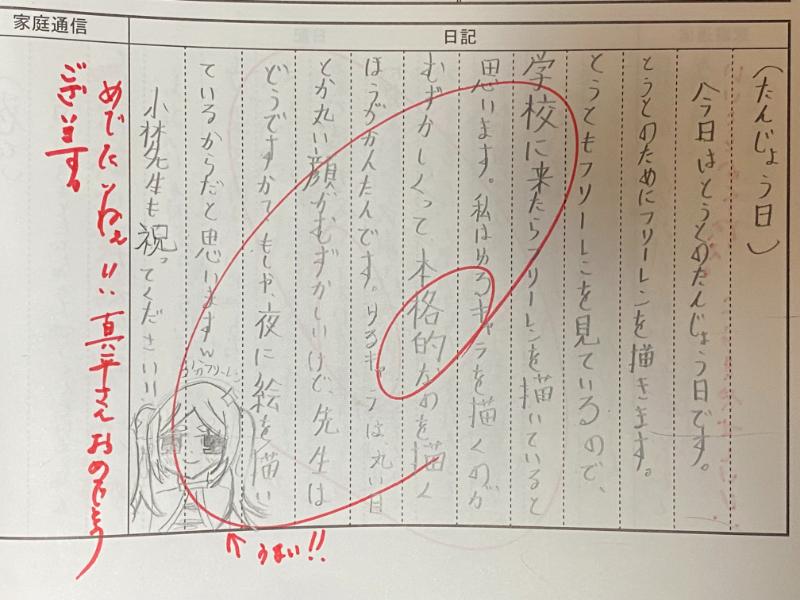 日記
(たんじょう日)
今日はとうとのたんじょう日です。
とうとのためにフリーレンを描きます。
とうともフリーレンを見ているので、
学校に来たらフリーレンを描いていると
思います。私はゆるキャラを描くのが
むずかしくって本格的なのを描く
ほうがかんたんです。ゆるキャラは丸い目
とか丸い顔がむずかしいけど、先生は
どうですか?もしや夜に絵を描い
ているからだと思いますw
小林先生も祝ってください!!
フリーレン
うまい!!
家庭通信
めでたいねぇ!! 真平さんおめでとう
ございます